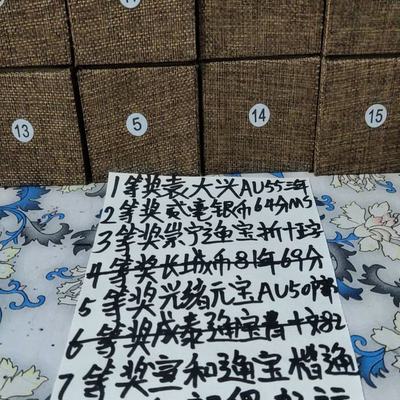 13
5
14
15
1等奖袁大头AU55三年
2等奖贰毫银币64分MS
3等奖崇宁通宝折十
4等奖长城币81年69分
5等奖光绪元宝AU50
6等奖咸泰通宝背十82
7等奖宣和通宝楷通